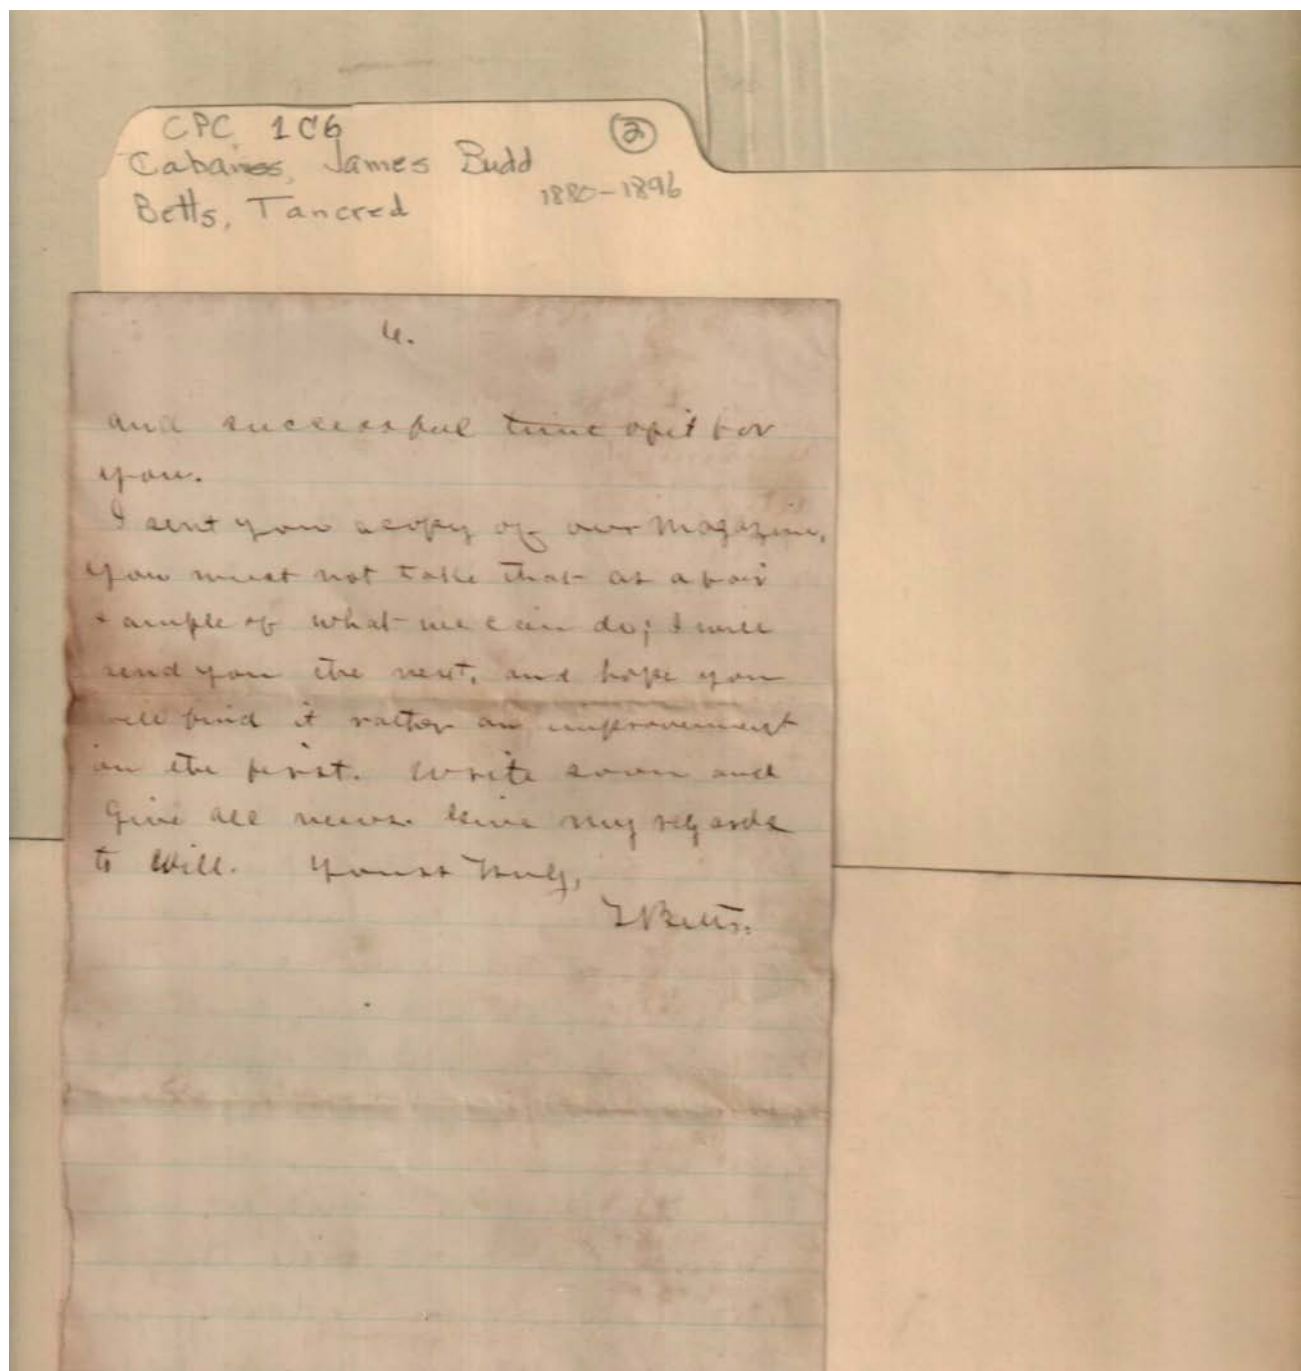 CPC 1C6
②
Cabaniss, James Budd
1880-1896
Betts, Tancred
and successful time of it for
you.
I sent you a copy of our Magazine,
you must not take that as a fair
sample of what we can do; I will
send you the next, and hope you
will find it rather an improvement
on the first. Write soon and
Give all news. Give my regards
to Will. Yours Truly,
T Betts.